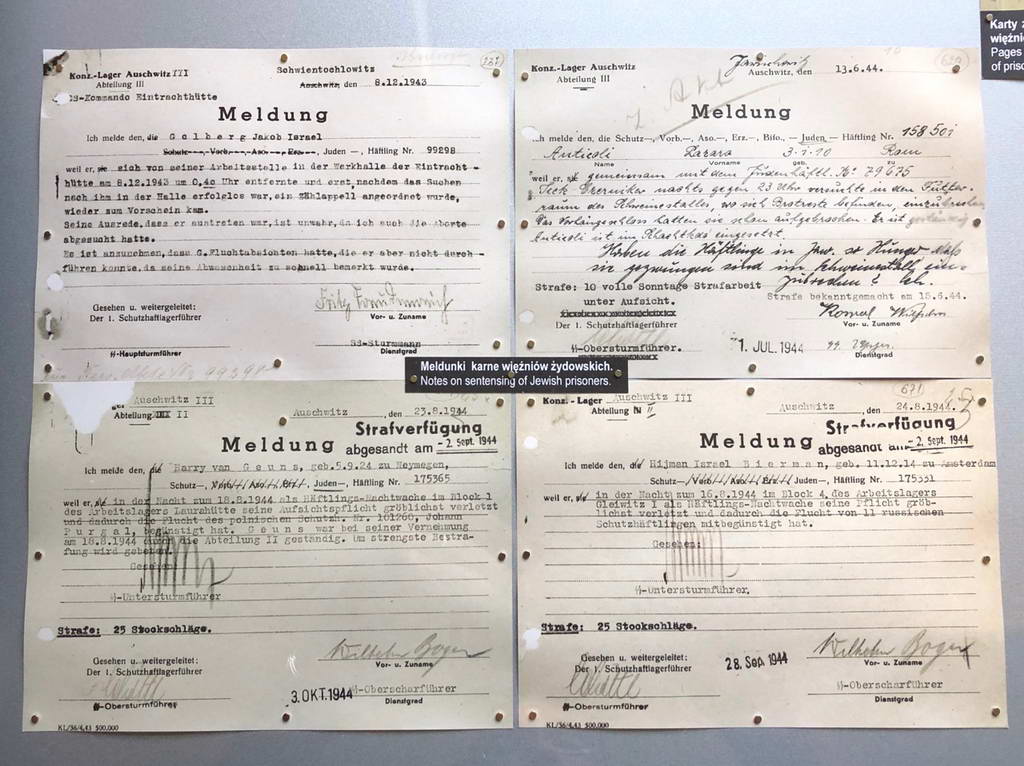 Karty z
więźnió
Pages
of priso
Konz.-Lager Auschwitz III
Abteilung III
SS-Kommando Eintrachthütte
Schwientochlowitz
Auschwitz, den 8.12.1943
Meldung
Ich melde den, die Golberg Jakob Israel
Schutz-, Vorb.-, Aso.-, Erz.-, Juden-, Häftling Nr. 99298
weil er, sie sich von seiner Arbeitsstelle in der Werkhalle der Eintracht-
hütte am 8.12.1943 um 0,40 Uhr entfernte und erst, nachdem das Suchen
nach ihm in der Halle erfolglos war, ein Zählappell angeordnet wurde,
wieder zum Vorschein kam.
Seine Ausrede, dass er austreten war, ist unwahr, da ich auch die Aborte
abgesucht hatte.
Es ist anzunehmen, dass G. Fluchtabsichten hatte, die er aber nicht durch-
führen konnte, da seine Abwesenheit zu schnell bemerkt wurde.
Gesehen u. weitergeleitet:
Der 1. Schutzhaftlagerführer
Fritz
Vor- u. Zuname
SS-Sturmmann
Dienstgrad
SS-Hauptsturmführer
Konz.-Lager Auschwitz
Abteilung III
Jawischowitz
Auschwitz, den 13.6.44.
Meldung
Ich melde den, die Schutz-, Vorb.-, Aso.-, Erz.-, Bifo., - Juden - Häftling Nr. 158501
Anticoli Lazaro 3.1.10 Rom
Name Vorname geb. zu
weil er, sie gemeinsam mit dem Judenhäftl. Nr. 79675
nachts gegen 23 Uhr versuchte in den Futter-
raum des Schweinestalles, wo sich Brotreste befinden, einzubrechen.
Das Vorhängeschloss hatten sie schon aufgebrochen. Er ist geständig
Anticoli ist im eingesetzt.
Haben die Häftlinge in Jaw. so Hunger dass
sie gezwungen sind im Schweinestall ein-
zubrechen?
Strafe: 10 volle Sonntage Strafarbeit
unter Aufsicht.
Strafe bekanntgemacht am 18.6.44.
Der 1. Schutzhaftlagerführer
Vor- u. Zuname
SS-Obersturmführer.
1. JUL 1944
Dienstgrad
Meldunki karne więźniów żydowskich.
Notes on sentensing of Jewish prisoners.
Auschwitz III
Abteilung III II
Auschwitz, den 23.8.1944
Strafverfügung
Meldung abgesandt am - 2. Sept. 1944
Ich melde den, die Harry van Geuns, geb. 5.9.24 zu Neymegen,
Schutz-, Vorb.-, Aso.-, Erz.-, Juden-, Häftling Nr. 175365
weil er, sie in der Nacht zum 18.8.1944 als Häftlings-Nachtwache im Block 1
des Arbeitslagers Laurahütte seine Aufsichtspflicht gröblichst verletzt
und dadurch die Flucht des polnischen Schutzh. Nr. 101260, Johann
Purgal, begünstigt hat. Geuns war bei seiner Vernehmung
am 18.8.1944 durch die Abteilung II geständig. Um strengste Bestra-
fung wird gebeten.
Gesehen:
SS-Untersturmführer
Strafe: 25 Stockschläge.
Gesehen u. weitergeleitet:
Der 1. Schutzhaftlagerführer
Wilhelm Boger
Vor- u. Zuname
SS-Obersturmführer
3. OKT. 1944
SS-Oberscharführer
Dienstgrad
KL/36/4.43 500.000
Konz.-Lager Auschwitz III
Abteilung IV II
Auschwitz, den 24.8.1944.
Strafverfügung
Meldung abgesandt am - 2. Sept. 1944
Ich melde den, die Hijman Israel Bierman, geb. 11.12.14 zu Amsterdam
Schutz-, Vorb.-, Aso.-, Erz.-, Juden-, Häftling Nr. 175331
weil er, sie in der Nacht zum 16.8.1944 im Block 4, des Arbeitslagers
Gleiwitz I als Häftlings-Nachtwache seine Pflicht gröb-
lichst verletzt und dadurch die Flucht von 11 russischen
Schutzhäftlingen mitbegünstigt hat.
Gesehen:
SS-Untersturmführer.
Strafe: 25 Stockschläge.
Gesehen u. weitergeleitet:
Der 1. Schutzhaftlagerführer
28. Sep. 1944
Wilhelm Boger
Vor- u. Zuname
SS-Obersturmführer
SS-Oberscharführer
Dienstgrad
KL/36/4.43 500.000